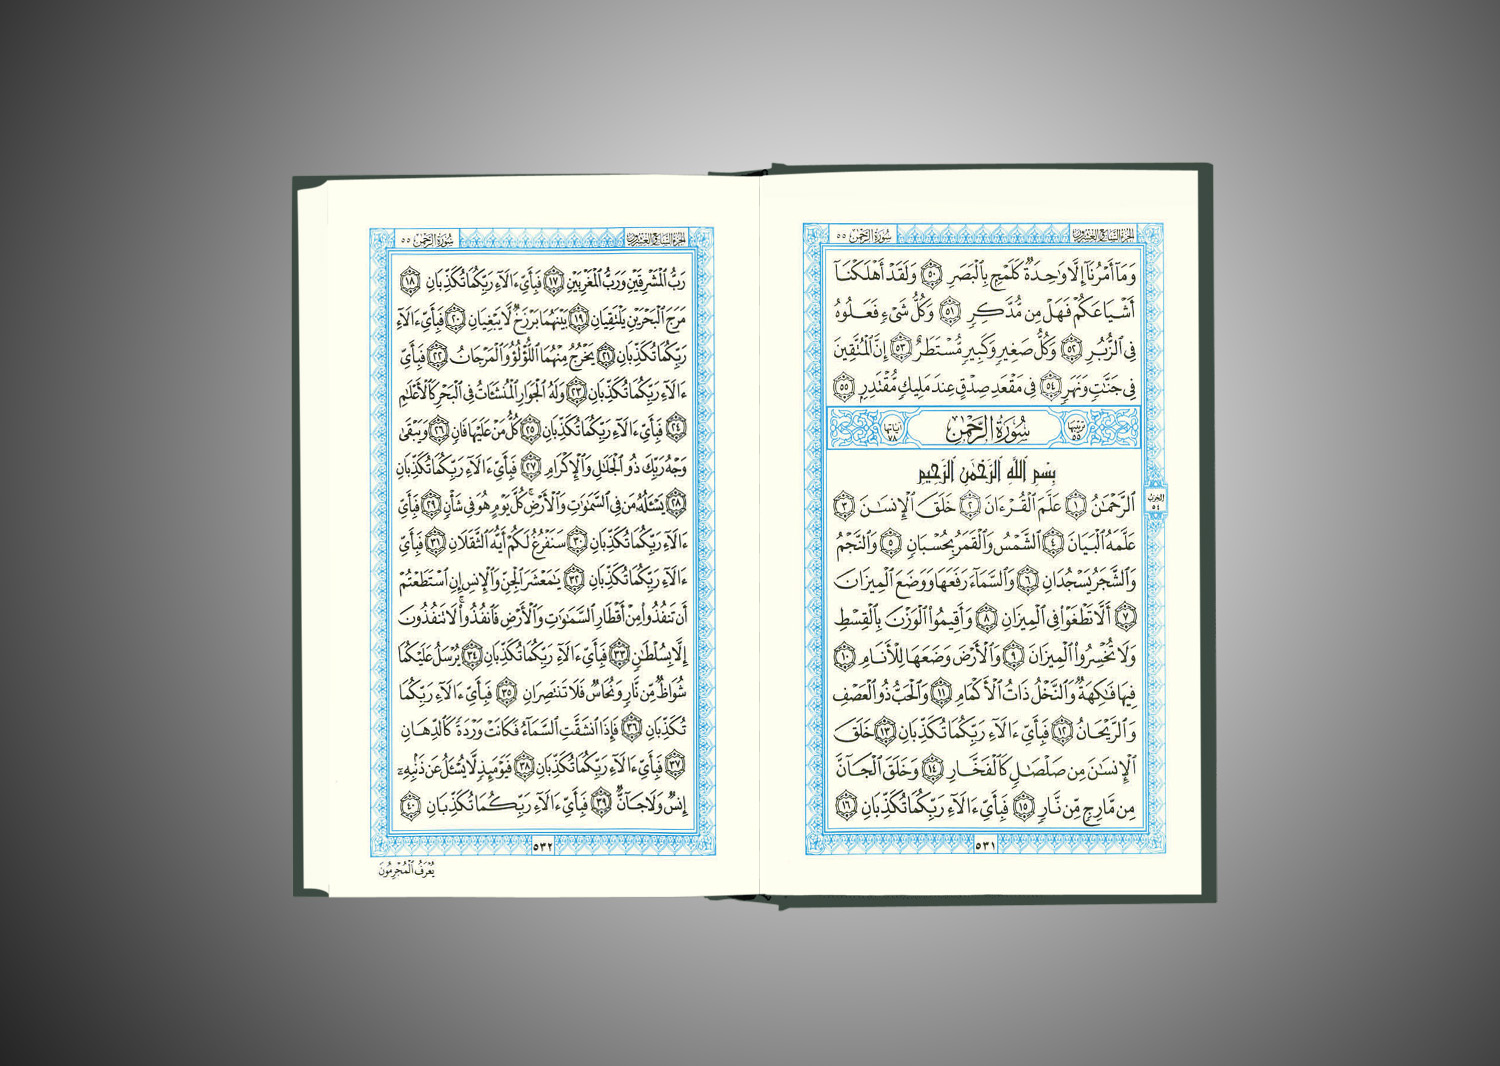 سُورَةُ الرَّحْمَٰن ٥٥
الجزء السابع والعشرون
وَمَآ أَمْرُنَآ إِلَّا وَٰحِدَةٌ كَلَمْحٍۭ بِٱلْبَصَرِ ٥٠ وَلَقَدْ أَهْلَكْنَآ
أَشْيَاعَكُمْ فَهَلْ مِن مُّدَّكِرٍ ٥١ وَكُلُّ شَىْءٍ فَعَلُوهُ
فِى ٱلزُّبُرِ ٥٢ وَكُلُّ صَغِيرٍ وَكَبِيرٍ مُّسْتَطَرٌ ٥٣ إِنَّ ٱلْمُتَّقِينَ
فِى جَنَّٰتٍ وَنَهَرٍ ٥٤ فِى مَقْعَدِ صِدْقٍ عِندَ مَلِيكٍ مُّقْتَدِرٍۭ ٥٥
ترتيبها ٥٥ سُورَةُ الرَّحْمَٰن آياتها ٧٨
بِسْمِ ٱللَّهِ ٱلرَّحْمَٰنِ ٱلرَّحِيمِ
ٱلرَّحْمَٰنُ ١ عَلَّمَ ٱلْقُرْءَانَ ٢ خَلَقَ ٱلْإِنسَٰنَ ٣
الحزب ٥٤
عَلَّمَهُ ٱلْبَيَانَ ٤ ٱلشَّمْسُ وَٱلْقَمَرُ بِحُسْبَانٍ ٥ وَٱلنَّجْمُ
وَٱلشَّجَرُ يَسْجُدَانِ ٦ وَٱلسَّمَآءَ رَفَعَهَا وَوَضَعَ ٱلْمِيزَانَ
٧ أَلَّا تَطْغَوْا۟ فِى ٱلْمِيزَانِ ٨ وَأَقِيمُوا۟ ٱلْوَزْنَ بِٱلْقِسْطِ
وَلَا تُخْسِرُوا۟ ٱلْمِيزَانَ ٩ وَٱلْأَرْضَ وَضَعَهَا لِلْأَنَامِ ١٠
فِيهَا فَٰكِهَةٌ وَٱلنَّخْلُ ذَاتُ ٱلْأَكْمَامِ ١١ وَٱلْحَبُّ ذُو ٱلْعَصْفِ
وَٱلرَّيْحَانُ ١٢ فَبِأَىِّ ءَالَآءِ رَبِّكُمَا تُكَذِّبَانِ ١٣ خَلَقَ
ٱلْإِنسَٰنَ مِن صَلْصَٰلٍ كَٱلْفَخَّارِ ١٤ وَخَلَقَ ٱلْجَآنَّ
مِن مَّارِجٍ مِّن نَّارٍ ١٥ فَبِأَىِّ ءَالَآءِ رَبِّكُمَا تُكَذِّبَانِ ١٦
٥٣١
سُورَةُ الرَّحْمَٰن ٥٥
الجزء السابع والعشرون
رَبُّ ٱلْمَشْرِقَيْنِ وَرَبُّ ٱلْمَغْرِبَيْنِ ١٧ فَبِأَىِّ ءَالَآءِ رَبِّكُمَا تُكَذِّبَانِ ١٨
مَرَجَ ٱلْبَحْرَيْنِ يَلْتَقِيَانِ ١٩ بَيْنَهُمَا بَرْزَخٌ لَّا يَبْغِيَانِ ٢٠ فَبِأَىِّ ءَالَآءِ
رَبِّكُمَا تُكَذِّبَانِ ٢١ يَخْرُجُ مِنْهُمَا ٱللُّؤْلُؤُ وَٱلْمَرْجَانُ ٢٢ فَبِأَىِّ
ءَالَآءِ رَبِّكُمَا تُكَذِّبَانِ ٢٣ وَلَهُ ٱلْجَوَارِ ٱلْمُنشَـَٔاتُ فِى ٱلْبَحْرِ كَٱلْأَعْلَٰمِ
٢٤ فَبِأَىِّ ءَالَآءِ رَبِّكُمَا تُكَذِّبَانِ ٢٥ كُلُّ مَنْ عَلَيْهَا فَانٍ ٢٦ وَيَبْقَىٰ
وَجْهُ رَبِّكَ ذُو ٱلْجَلَٰلِ وَٱلْإِكْرَامِ ٢٧ فَبِأَىِّ ءَالَآءِ رَبِّكُمَا تُكَذِّبَانِ
٢٨ يَسْـَٔلُهُۥ مَن فِى ٱلسَّمَٰوَٰتِ وَٱلْأَرْضِ ۚ كُلَّ يَوْمٍ هُوَ فِى شَأْنٍ ٢٩ فَبِأَىِّ
ءَالَآءِ رَبِّكُمَا تُكَذِّبَانِ ٣٠ سَنَفْرُغُ لَكُمْ أَيُّهَ ٱلثَّقَلَانِ ٣١ فَبِأَىِّ
ءَالَآءِ رَبِّكُمَا تُكَذِّبَانِ ٣٢ يَٰمَعْشَرَ ٱلْجِنِّ وَٱلْإِنسِ إِنِ ٱسْتَطَعْتُمْ
أَن تَنفُذُوا۟ مِنْ أَقْطَارِ ٱلسَّمَٰوَٰتِ وَٱلْأَرْضِ فَٱنفُذُوا۟ ۚ لَا تَنفُذُونَ
إِلَّا بِسُلْطَٰنٍ ٣٣ فَبِأَىِّ ءَالَآءِ رَبِّكُمَا تُكَذِّبَانِ ٣٤ يُرْسَلُ عَلَيْكُمَا
شُوَاظٌ مِّن نَّارٍ وَنُحَاسٌ فَلَا تَنتَصِرَانِ ٣٥ فَبِأَىِّ ءَالَآءِ رَبِّكُمَا
تُكَذِّبَانِ ٣٦ فَإِذَا ٱنشَقَّتِ ٱلسَّمَآءُ فَكَانَتْ وَرْدَةً كَٱلدِّهَانِ
٣٧ فَبِأَىِّ ءَالَآءِ رَبِّكُمَا تُكَذِّبَانِ ٣٨ فَيَوْمَئِذٍ لَّا يُسْـَٔلُ عَن ذَنۢبِهِۦٓ
إِنسٌ وَلَا جَآنٌّ ٣٩ فَبِأَىِّ ءَالَآءِ رَبِّكُمَا تُكَذِّبَانِ ٤٠
٥٣٢
يُعْرَفُ ٱلْمُجْرِمُونَ